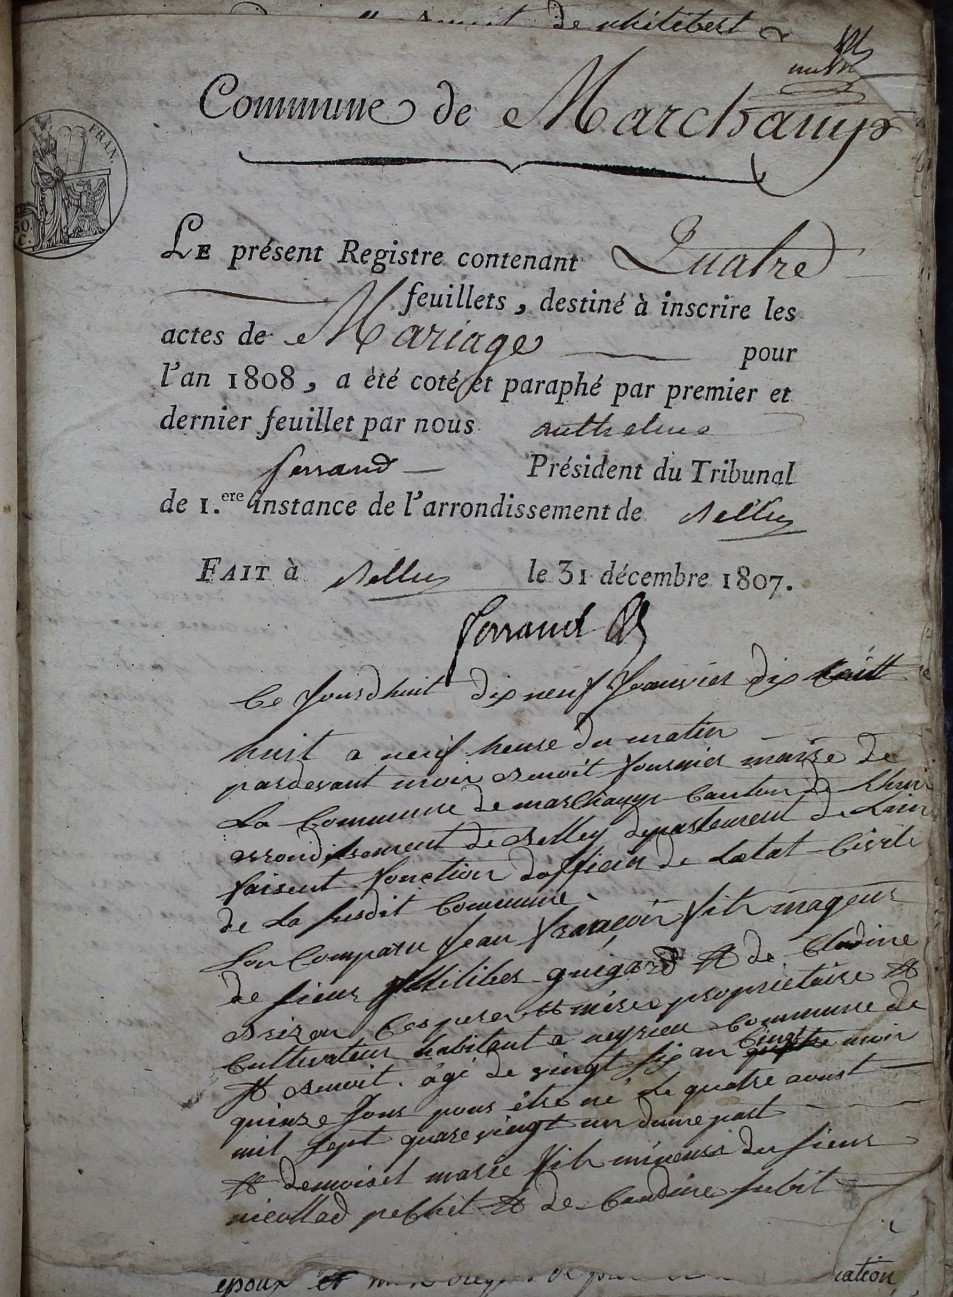 de
Commune de Marchamp
FRAN
50.
C.
LE présent Registre contenant Quatre
feuillets, destiné à inscrire les
actes de Mariage pour
l'an 1808, a été coté et paraphé par premier et
dernier feuillet par nous anthelme
ferrand Président du Tribunal
de 1.ere instance de l'arrondissement de Belley
FAIT à Belley le 31 décembre 1807.
ferrand
Ce Jourdhuit dix neuf Janvier dix huitt
huit a neuf heure du matin
pardevant moir Benoit fournier maire de
La Commune de marchamp Canton de Lhuis
arrondissement de Belley département de Lain
faisent fonction dofficier de Letat Civile
de La susdit Commune
Son Comparu Jean françoir fils mageur
de sieur guigard et de Clodine
ses pere et mere propriétaire et
Cultivateur habitant a Commune de
St Benoit. agé de vingt six an Cinq moir
quinze Jour pour être né Le quatre aoust
mil sept quare vingt un dune part
et demoisel marie fils mineure du sieur
nicollad pechet et de Claudine subit
epoux et